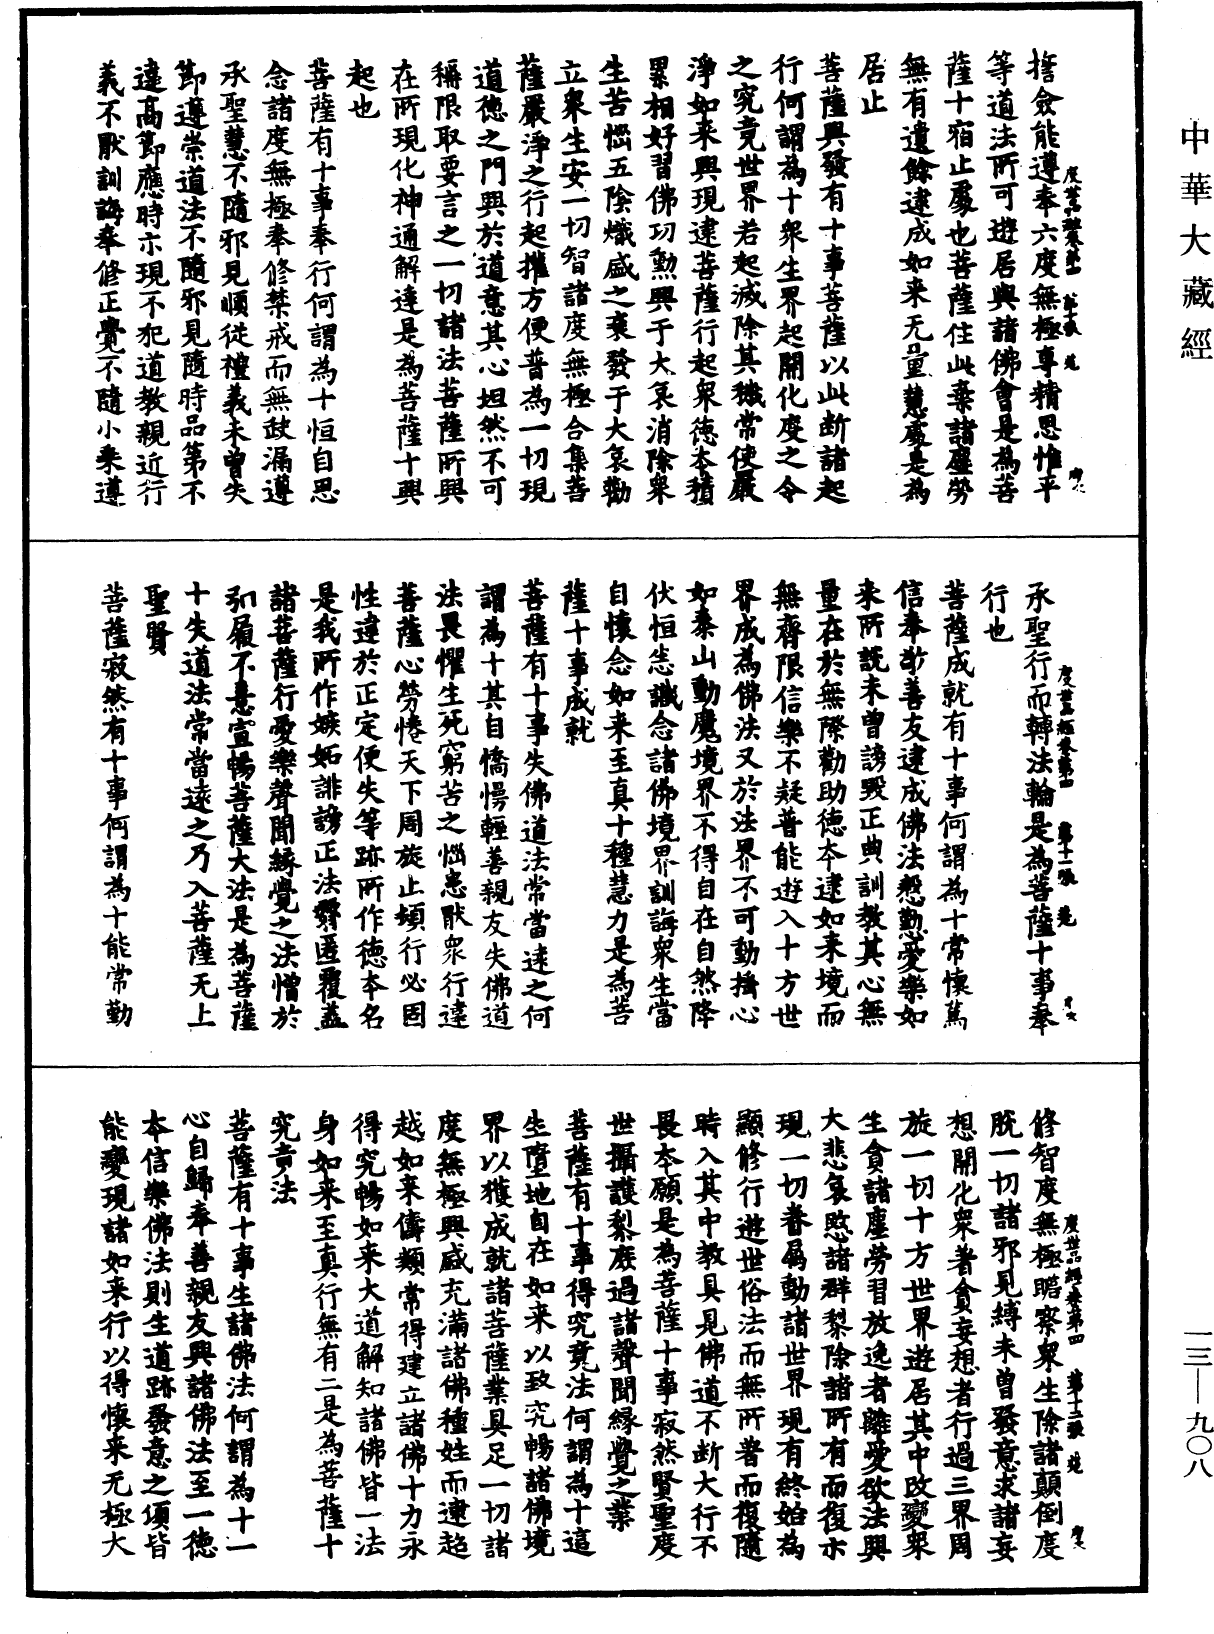 中華大藏經
一三—九〇八
捨僉能遵奉六度無極專精思惟平
度世品經卷第四 第十張
等道法所可遊居與諸佛會是為菩
薩十宿止處也菩薩住此棄諸塵勞
無有遺餘逮成如来无量慧處是為
居止
菩薩興發有十事菩薩以此断諸起
行何謂為十衆生界起開化度之令
之究竟世界若起滅除其穢常使嚴
淨如来興現逮菩薩行起衆德夲積
累相好習佛功勲興于大哀消除衆
生苦惱五陰熾盛之衰發于大哀勸
立衆生安一切智諸度無極合集菩
薩嚴淨之行起權方便普為一切現
道德之門興於道意其心坦然不可
稱限取要言之一切諸法菩薩所興
在所現化神通解達是為菩薩十興
起也
菩薩有十事奉行何謂為十恒自思
念諸度無極奉修禁戒而無䟽漏遵
承聖慧不隨邪見順從禮義未曾失
節遵崇道法不隨邪見隨時品第不
違高節應時示現不犯道教親近行
義不猒訓誨奉修正覺不隨小乗遵
承聖行而轉法輪是為菩薩十事奉
度世品經卷第四 第十一張
行也
菩薩成就有十事何謂為十常懷篤
信奉敬善友逮成佛法慇懃愛樂如
来所說未曾謗毀正典訓教其心無
量在於無際勸助德夲逮如来境而
無齊限信樂不疑普能遊入十方世
界成為佛法又於法界不可動揺心
如泰山動魔境界不得自在自然降
伏恒恣識念諸佛境界訓誨衆生當
自懷念如来至真十種慧力是為菩
薩十事成就
菩薩有十事失佛道法常當遠之何
謂為十其自憍慢輕善親友失佛道
法畏懼生死窮苦之惱患猒衆行違
菩薩心勞惓天下周旋止頓行必固
性違於正定便失等跡所作德夲名
是我所作嫉妬誹謗正法弊匿覆蓋
諸菩薩行愛樂聲聞緣覺之法憎於
弘履不喜宣暢菩薩大法是為菩薩
十失道法常當遠之乃入菩薩无上
聖賢
菩薩寂然有十事何謂為十能常勤
修智度無極瞻察衆生除諸顛倒度
度世品經卷第四 第十二張
脫一切諸邪見縛未曾發意求諸妄
想開化衆著貪妄想者行過三界周
旋一切十方世界遊居其中改變衆
生貪諸塵勞習放逸者離愛欲法興
大悲哀愍諸群黎除諸所有而復示
現一切眷屬動諸世界現有終始為
顯修行遊世俗法而無所著而復隨
時入其中教具見佛道不断大行不
畏夲願是為菩薩十事寂然賢聖度
世攝護黎庶過諸聲聞緣覺之業
菩薩有十事得究竟法何謂為十這
生墮地自在如来以致究暢諸佛境
界以獲成就諸菩薩業具足一切諸
度無極興盛充滿諸佛種姓而逮超
越如来儔類常得建立諸佛十力永
得究暢如来大道解知諸佛皆一法
身如来至真行無有二是為菩薩十
究竟法
菩薩有十事生諸佛法何謂為十一
心自歸奉善親友興諸佛法至一德
夲信樂佛法則生道跡發意之頃皆
能變現諸如来行以得懷来无極大